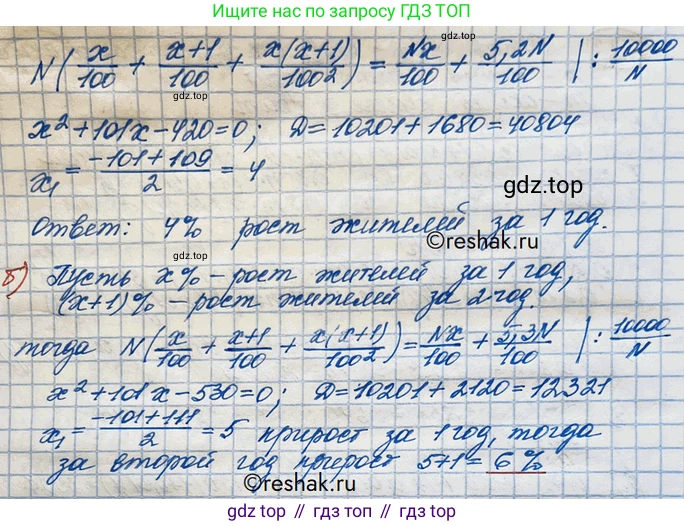 Ищите нас по запросу ГДЗ ТОП
N(x/100 + x+1/100 + x(x+1)/100²) = Nx/100 + 5,2N/100 | : 10000/N
gdz.top
x²+101x-420=0; D=10201+1680=40804
x₁ = -101+109/2 = 4
gdz.top
gdz.top
Ответ: 4% рост жителей за 1 год.
©reshak.ru
б) Пусть x% - рост жителей за 1 год,
(x+1)% - рост жителей за 2 год.
gdz.top
тогда N(x/100 + x+1/100 + x(x+1)/100²) = Nx/100 + 5,3N/100 | : 10000/N
x²+101x-530=0; D=10201+2120=12321
x₁ = -101+111/2 = 5 прирост за 1 год, тогда
за второй год прирост 5+1=6%
©reshak.ru
gdz.top // gdz.top // gdz.top